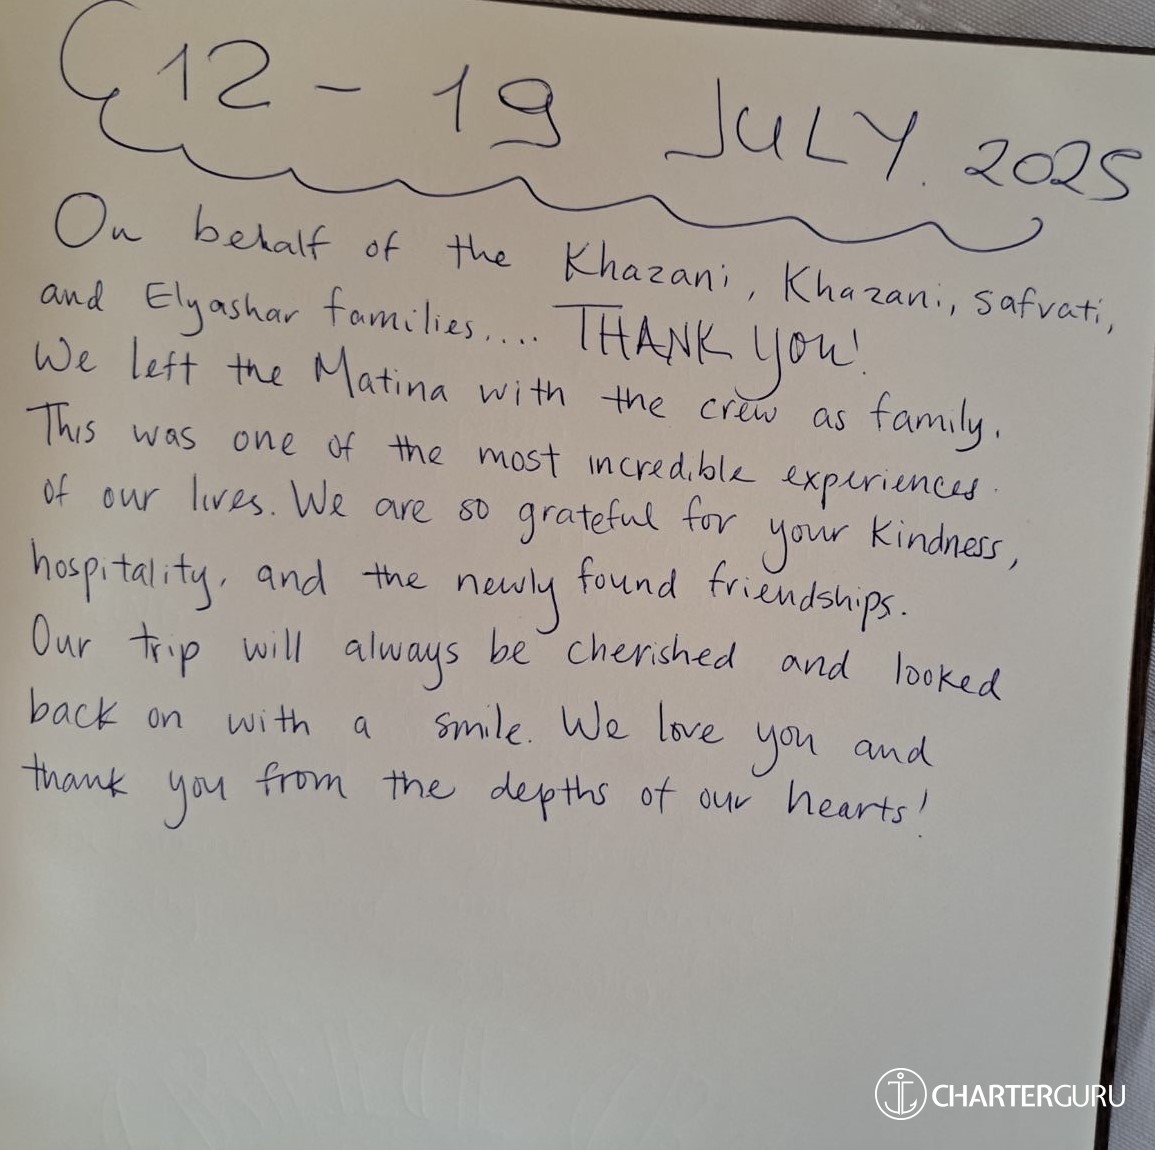 12 - 19 JULY. 2025
On behalf of the Khazani, Khazani, Safvati,
and Elyashar families.... THANK YOU!
We left the Matina with the crew as family.
This was one of the most incredible experiences
of our lives. We are so grateful for your kindness,
hospitality, and the newly found friendships.
Our trip will always be cherished and looked
back on with a smile. We love you and
thank you from the depths of our hearts!
CHARTERGURU